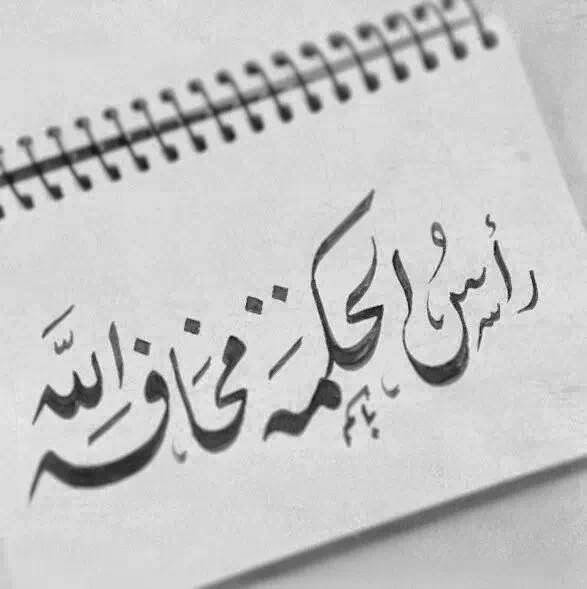 رأسُ الحكمة مخَافةِ اللَّه